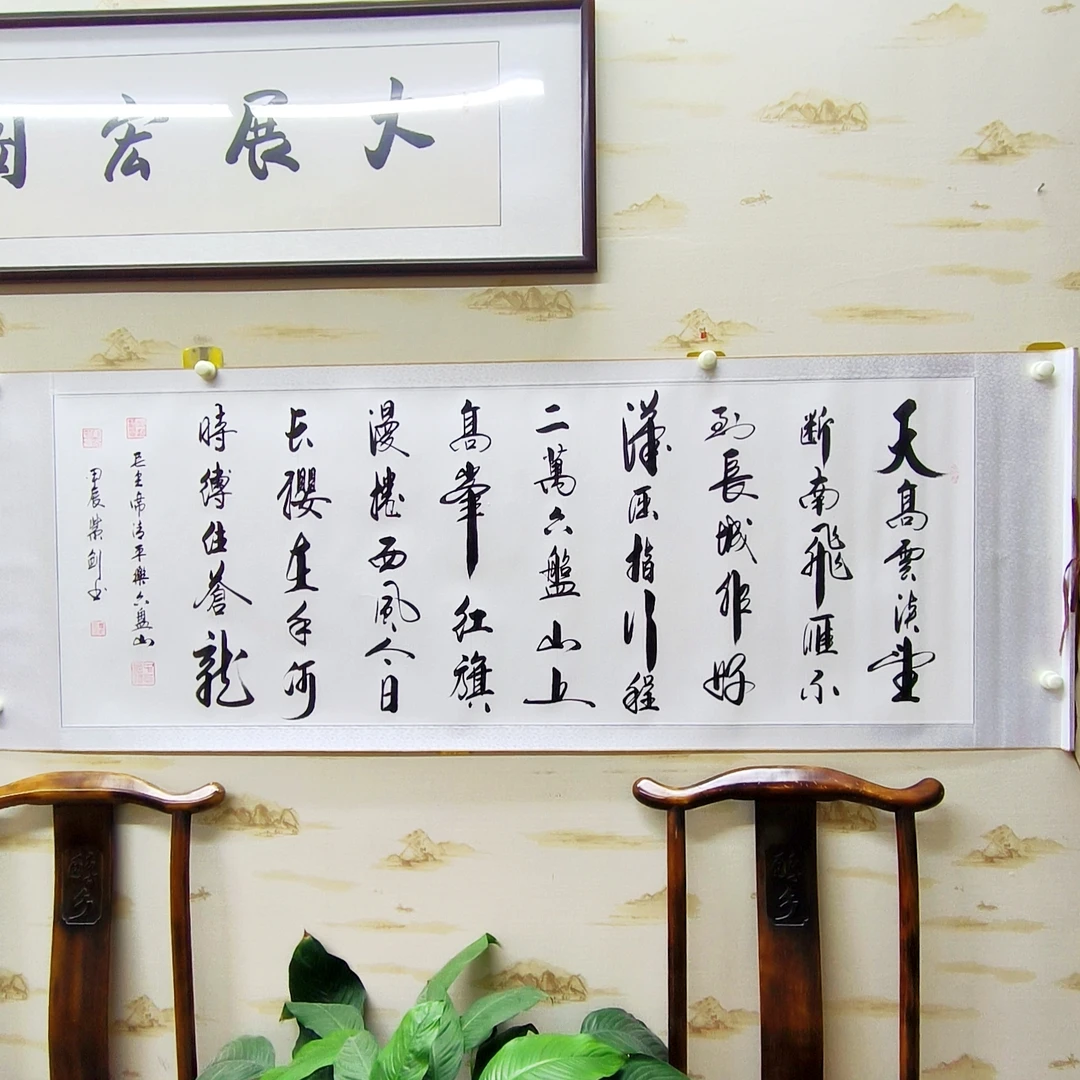 大展宏
天高雲淡望
断南飛雁不
到長城非好
漢屈指行程
二萬六盤山上
高峯紅旗
漫捲西風今日
长纓在手何
時縛住蒼龍
毛主席清平樂六盤山
甲辰榮剑书